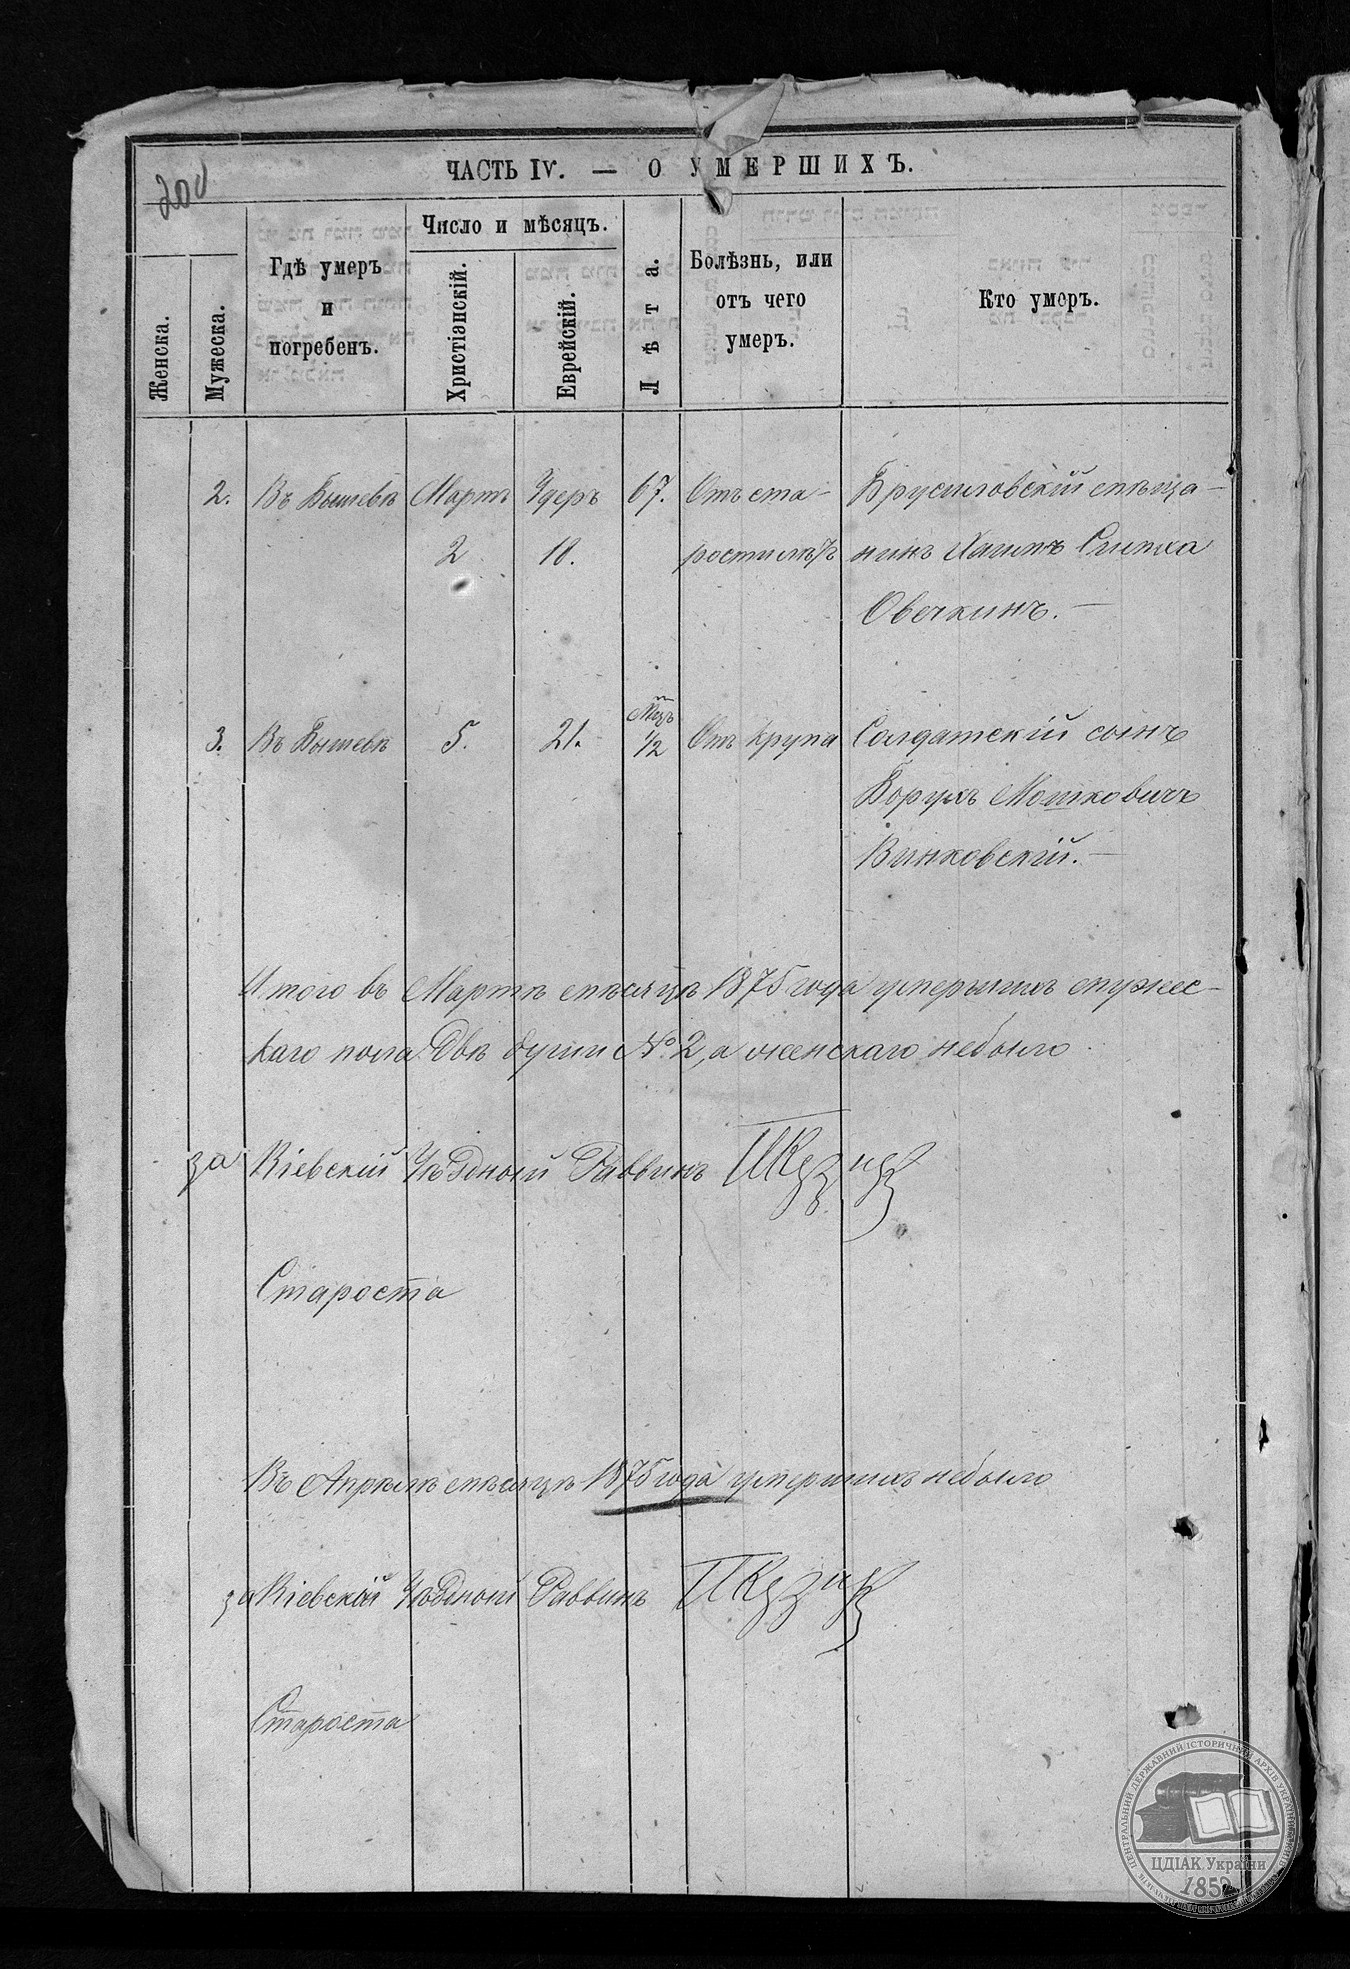 200
ЧАСТЬ IV. — О УМЕРШИХЪ.
Женска.
Мужеска.
Гдѣ умеръ
и
погребенъ.
Число и мѣсяцъ.
Христіанскій.
Еврейскій.
Лѣта.
Болѣзнь, или
отъ чего
умеръ.
Кто умеръ.
2. Въ Бышевѣ Мартъ Адеръ 67. Отъ ста- Брусиловскій мѣща-
2 18. рости лѣтъ нинъ Хаимъ Симха
Овечкинъ. —
Мѣц
3. Въ Бышевѣ 5. 21. 1/2 Отъ крупа Солдатскій сынъ
Борухъ Мошковичъ
Винковскій. —
Итого въ Мартѣ мѣсяцѣ 1875 года умершихъ мужес-
каго пола двѣ души № 2, а женскаго небыло
за Кіевскій Уѣздный Раввинъ
Староста
Въ Апрѣлѣ мѣсяцѣ 1875 года умершихъ небыло
за Кіевскій Уѣздный Раввинъ
Староста
ЦЕНТРАЛЬНИЙ ДЕРЖАВНИЙ ІСТОРИЧНИЙ АРХІВ УКРАЇНИ
ЦДІАК України
1852